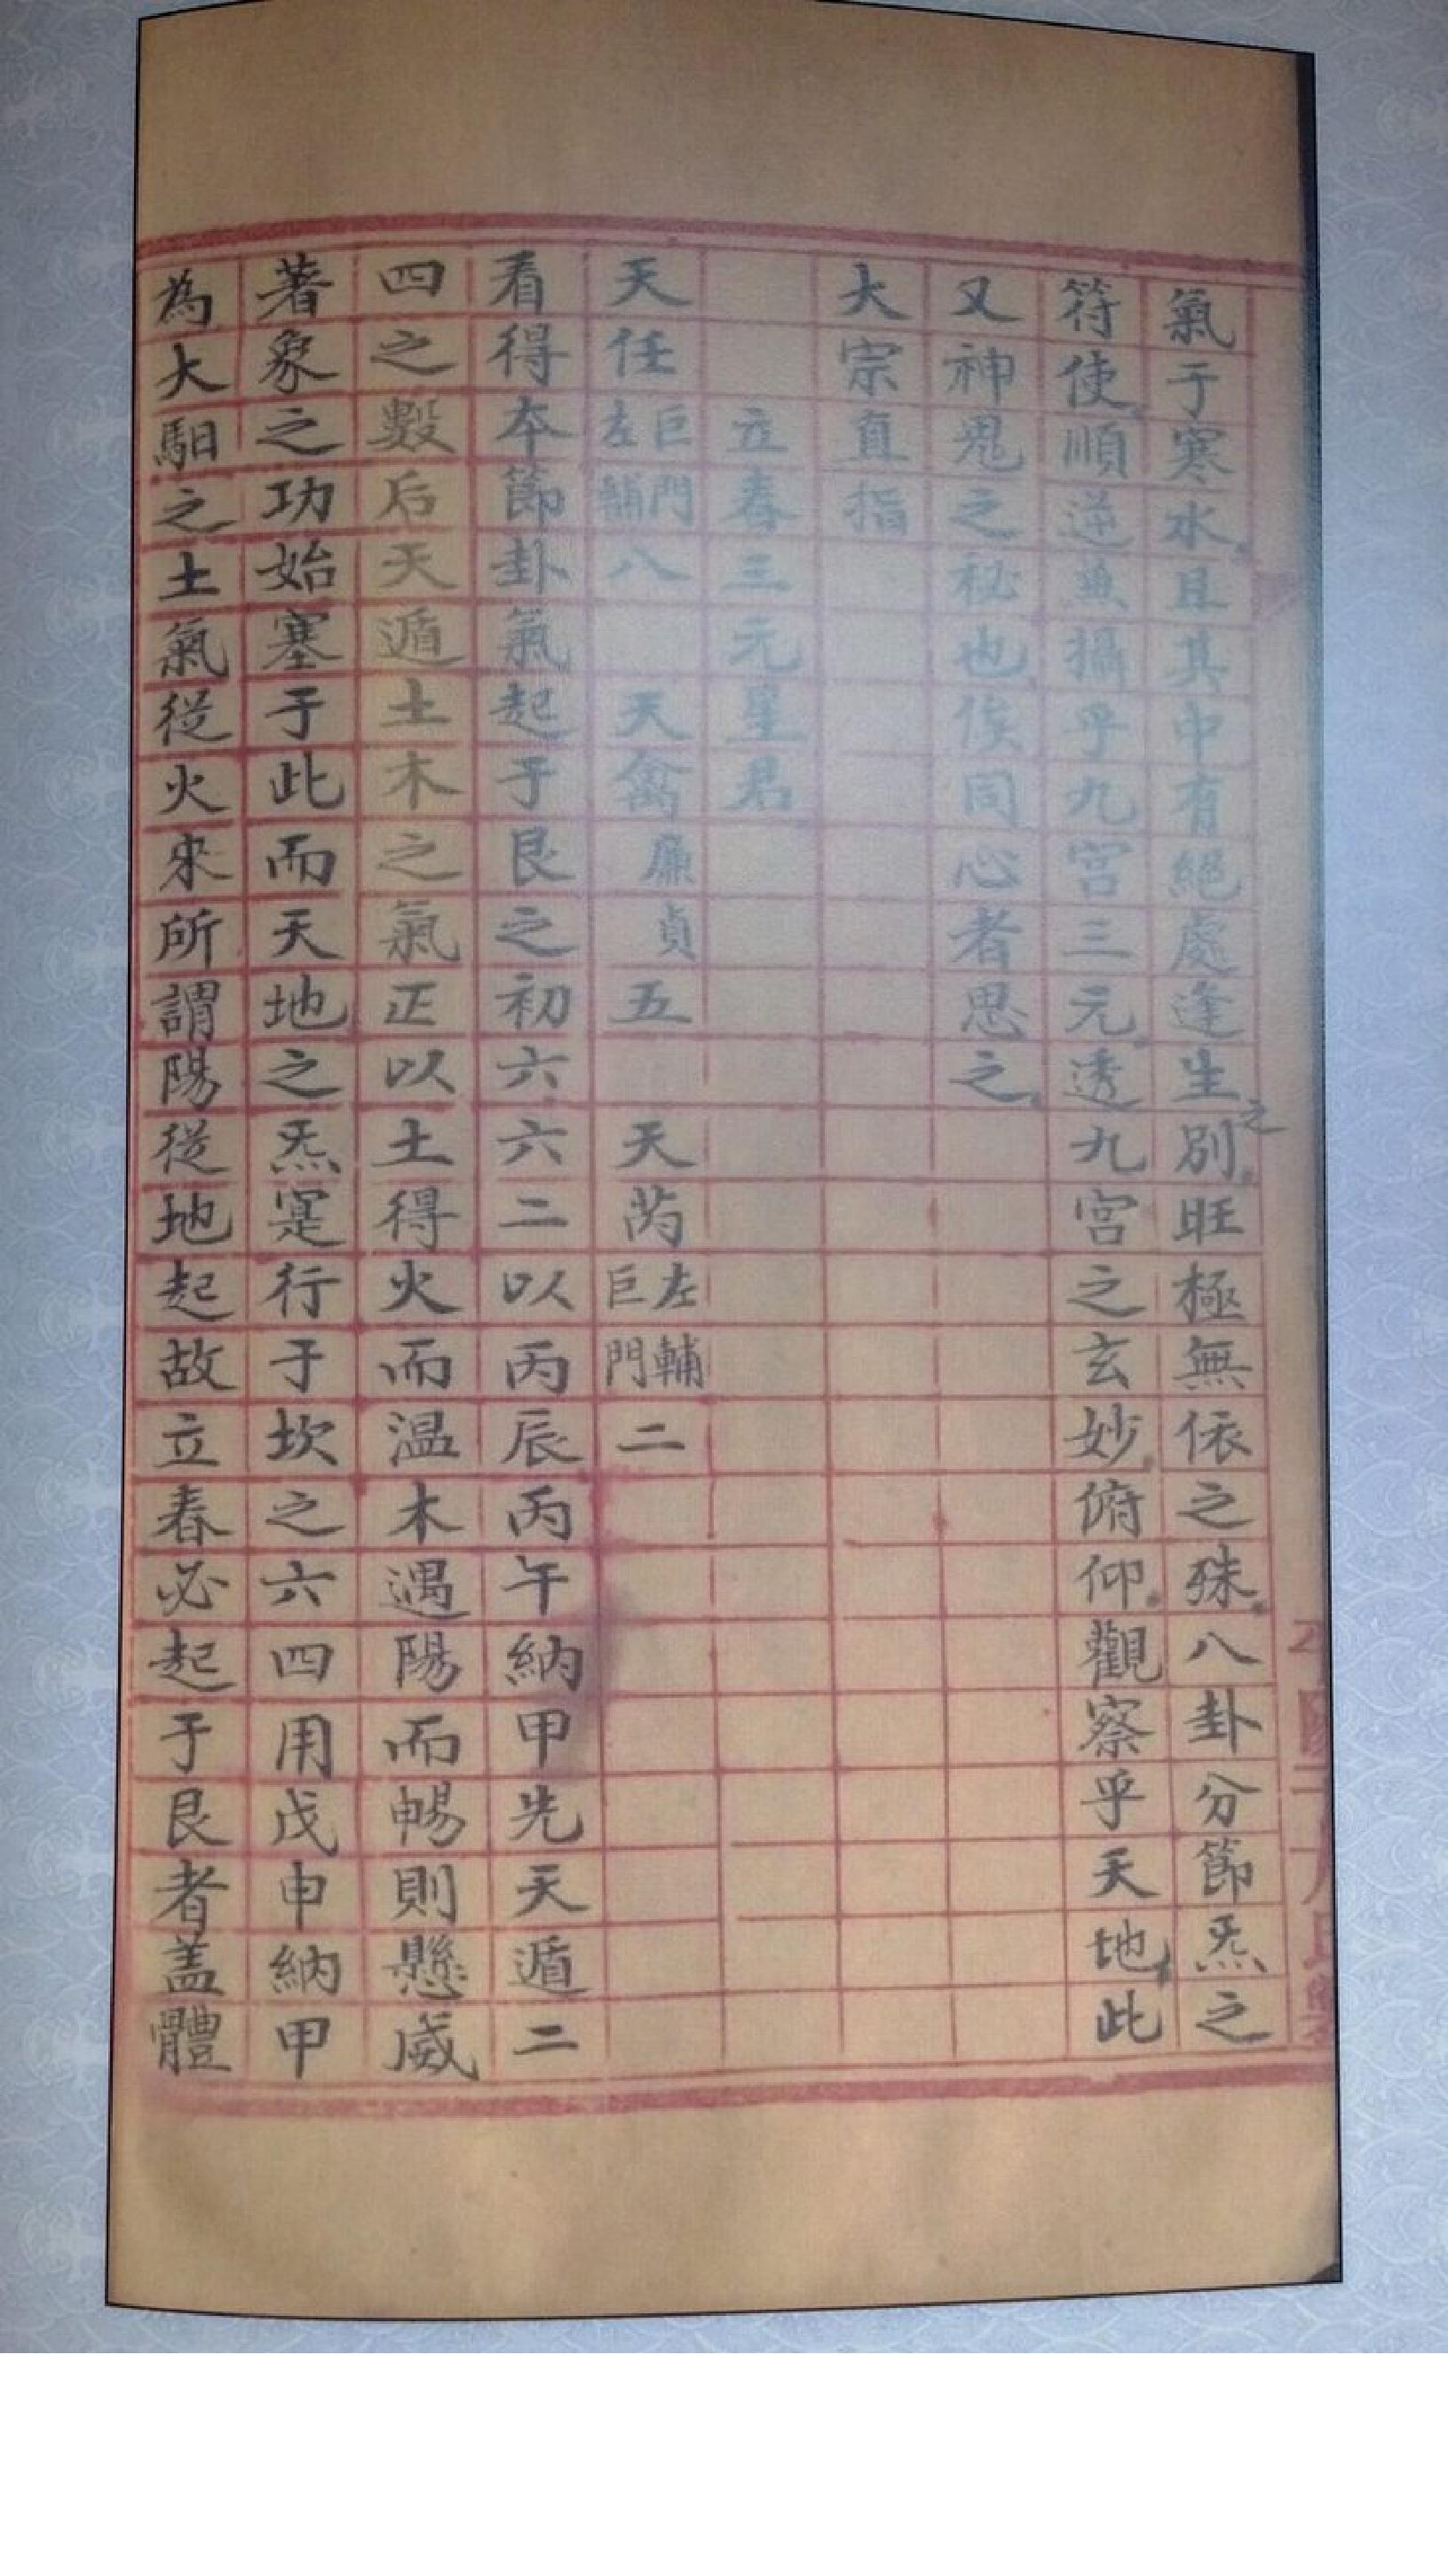 氣于寒水。且其中有絕處逢生之別。旺極無依之殊。八卦分節炁之
符使。順逆兼攝乎九宮三元。透九宮之玄妙。俯仰。觀察乎天地。此
又神鬼之秘也。俟同心者思之。
大宗直指
立春三元星君
天任巨門左輔八 天禽廉貞五 天芮左輔巨門二
看得本節卦氣起于艮之初六六二以丙辰丙午納甲先天遁二
四之數后天遁土木之氣正以土得火而温木遇陽而暢則懸葳
著象之功始塞于此而天地之炁寔行于坎之六四用戊申納甲
為大馹之土氣從火來所謂陽從地起故立春必起于艮者盖體